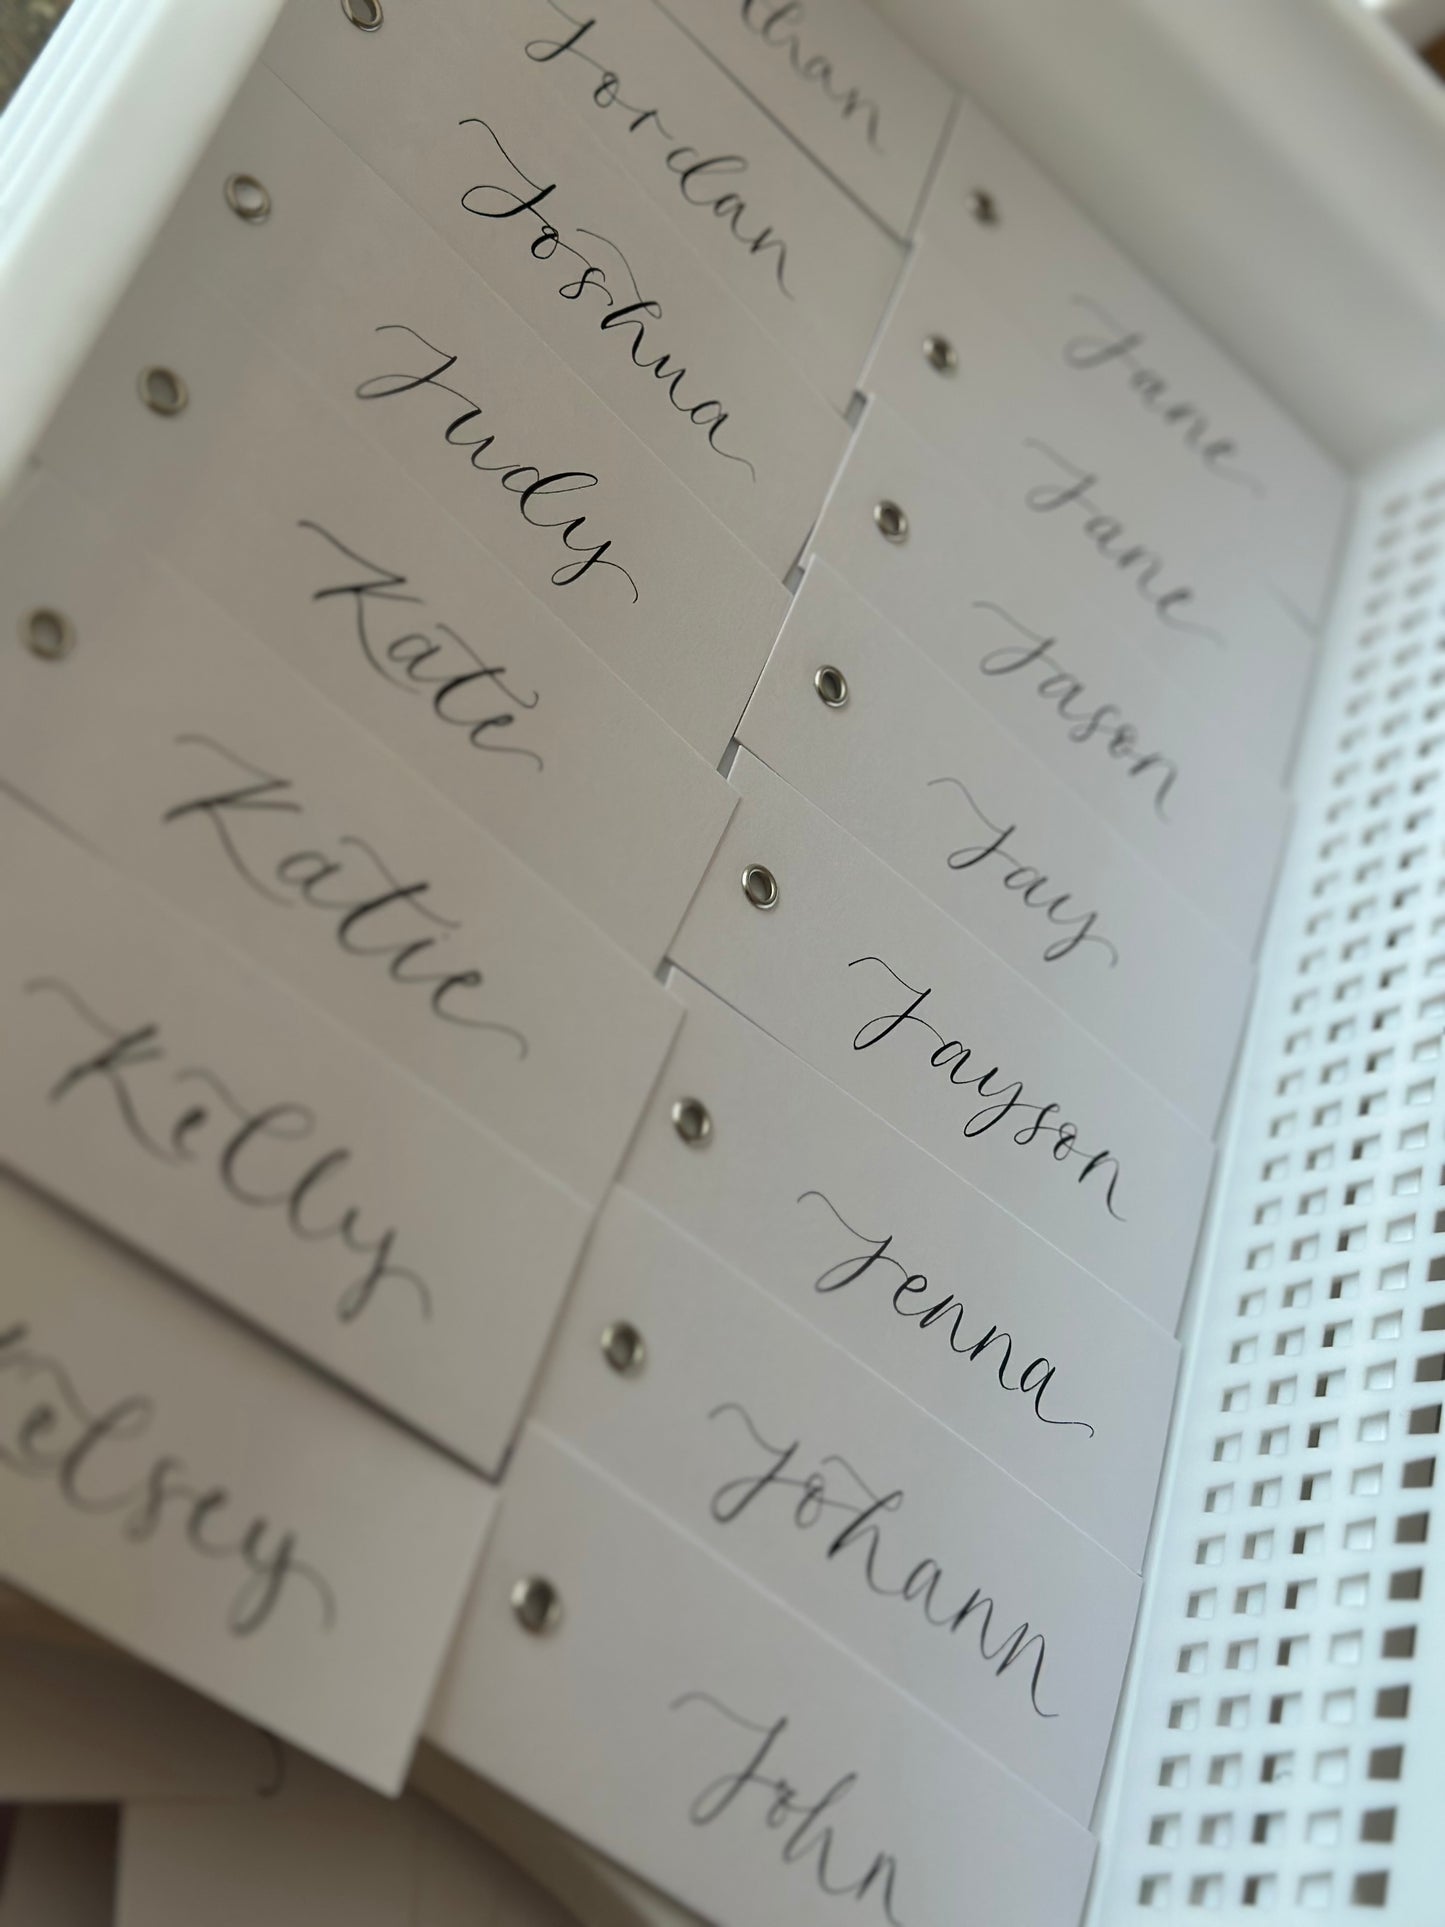 Jordan
Joshua
Judy
Kate
Katie
Kelly
Jane
Jane
Jason
Jay
Jayson
Jenna
Johann
John